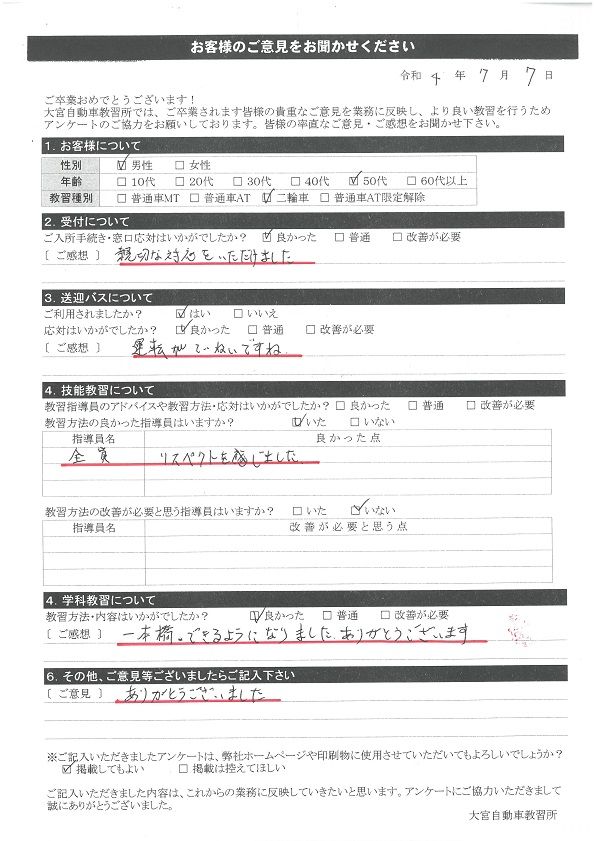 お客様のご意見をお聞かせください
令和 4 年 7 月 7 日
ご卒業おめでとうございます！
大宮自動車教習所では、ご卒業されます皆様の貴重なご意見を業務に反映し、より良い教習を行うため
アンケートのご協力をお願いしております。皆様の率直なご意見・ご感想をお聞かせ下さい。
1. お客様について
性別 ☑男性 □女性
年齢 □10代 □20代 □30代 □40代 ☑50代 □60代以上
教習種別 □普通車MT □普通車AT ☑二輪車 □普通車AT限定解除
2. 受付について
ご入所手続き・窓口応対はいかがでしたか？ ☑良かった □普通 □改善が必要
〔 ご感想 〕 親切な対応をいただけました
3. 送迎バスについて
ご利用されましたか？ ☑はい □いいえ
応対はいかがでしたか？ ☑良かった □普通 □改善が必要
〔 ご感想 〕 運転がていねいですね.
4. 技能教習について
教習指導員のアドバイスや教習方法・応対はいかがでしたか？ □良かった □普通 □改善が必要
教習方法の良かった指導員はいますか？ ☑いた □いない
指導員名 良かった点
全員 リスペクトを感じました
教習方法の改善が必要と思う指導員はいますか？ □いた ☑いない
指導員名 改善が必要と思う点
4. 学科教習について
教習方法・内容はいかがでしたか？ ☑良かった □普通 □改善が必要
〔 ご感想 〕 一本橋。できるようになりました.ありがとうございます
6. その他、ご意見等ございましたらご記入下さい
〔 ご意見 〕 ありがとうございました
※ご記入いただきましたアンケートは、弊社ホームページや印刷物に使用させていただいてもよろしいでしょうか？
☑掲載してもよい □掲載は控えてほしい
ご記入いただきました内容は、これからの業務に反映していきたいと思います。アンケートにご協力いただきまして
誠にありがとうございました。
大宮自動車教習所